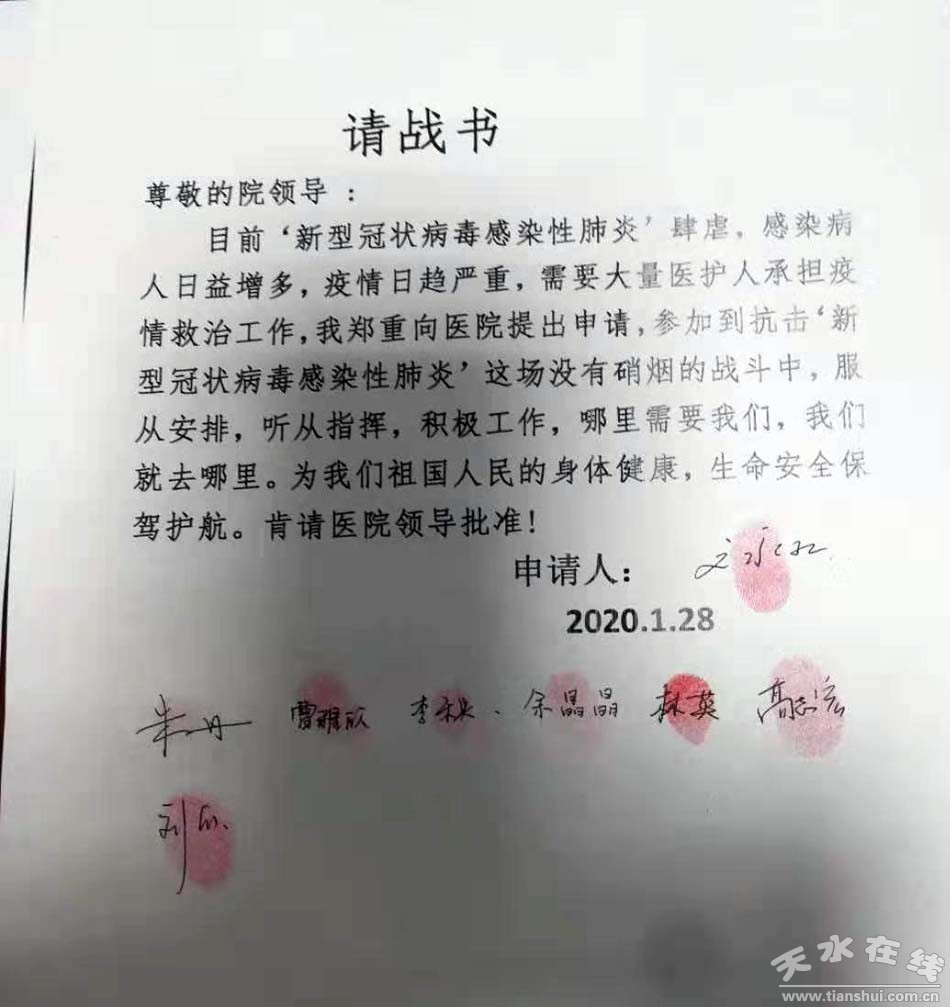 请战书
尊敬的院领导：
目前‘新型冠状病毒感染性肺炎’肆虐，感染病
人日益增多，疫情日趋严重，需要大量医护人承担疫
情救治工作，我郑重向医院提出申请，参加到抗击‘新
型冠状病毒感染性肺炎’这场没有硝烟的战斗中，服
从安排，听从指挥，积极工作，哪里需要我们，我们
就去哪里。为我们祖国人民的身体健康，生命安全保
驾护航。肯请医院领导批准！
申请人：
2020.1.28
朱丹 曹雅欣 余晶晶 林英 高志宏
天水在线
www.tianshui.com.cn